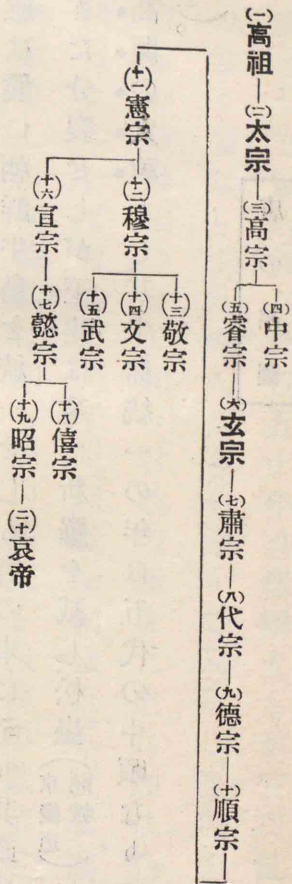 (一)高祖
(二)太宗
(三)高宗
(四)中宗
(五)睿宗
(六)玄宗
(七)肅宗
(八)代宗
(九)德宗
(十)順宗
(十一)憲宗
(十二)穆宗
(十三)敬宗
(十四)文宗
(十五)武宗
(十六)宣宗
(十七)懿宗
(十八)僖宗
(十九)昭宗
(二十)哀帝